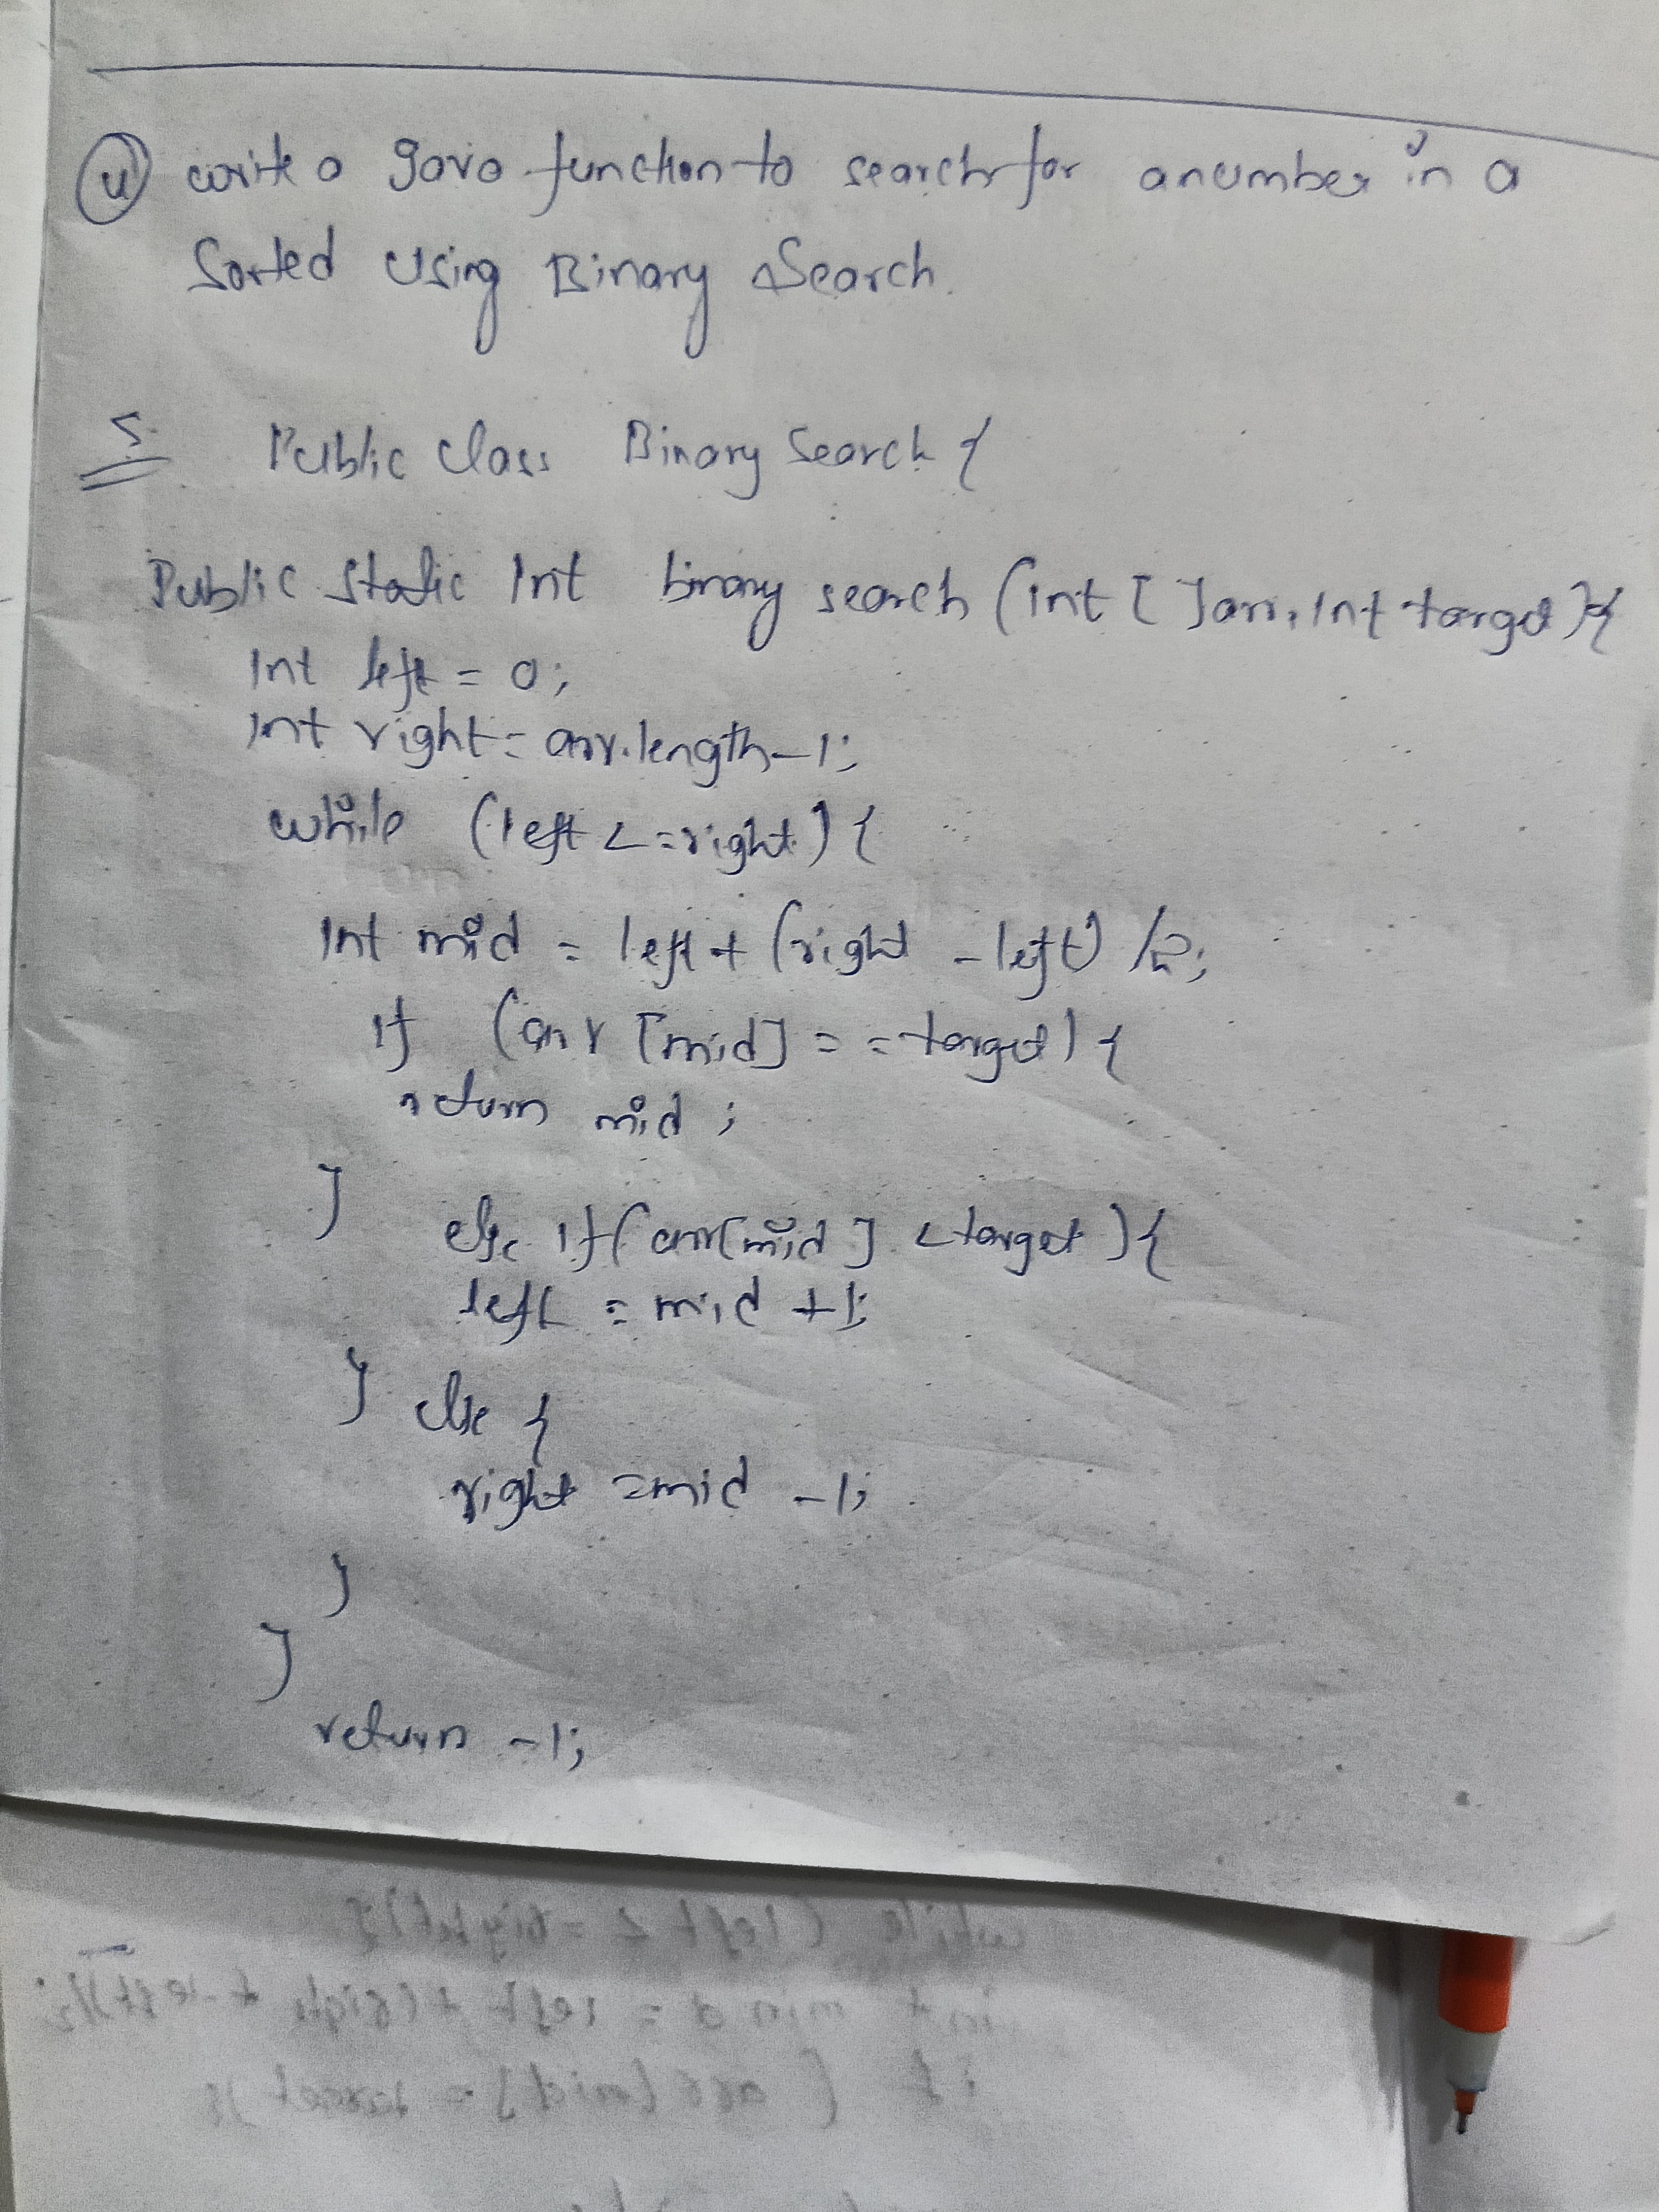 ④ write a Java function to search for a number in a
Sorted Using Binary Search.
S.
Public Class Binary Search {
Public Static Int binary search (int [ ] arr, Int target) {
Int left = 0;
Int right = arr.length-1;
while (left <= right) {
Int mid = left + (right - left) /2;
If (arr [mid] = = target) {
return mid ;
}
else If (arr[mid] < target ) {
left = mid +1;
} else {
right = mid -1;
}
}
return -1;